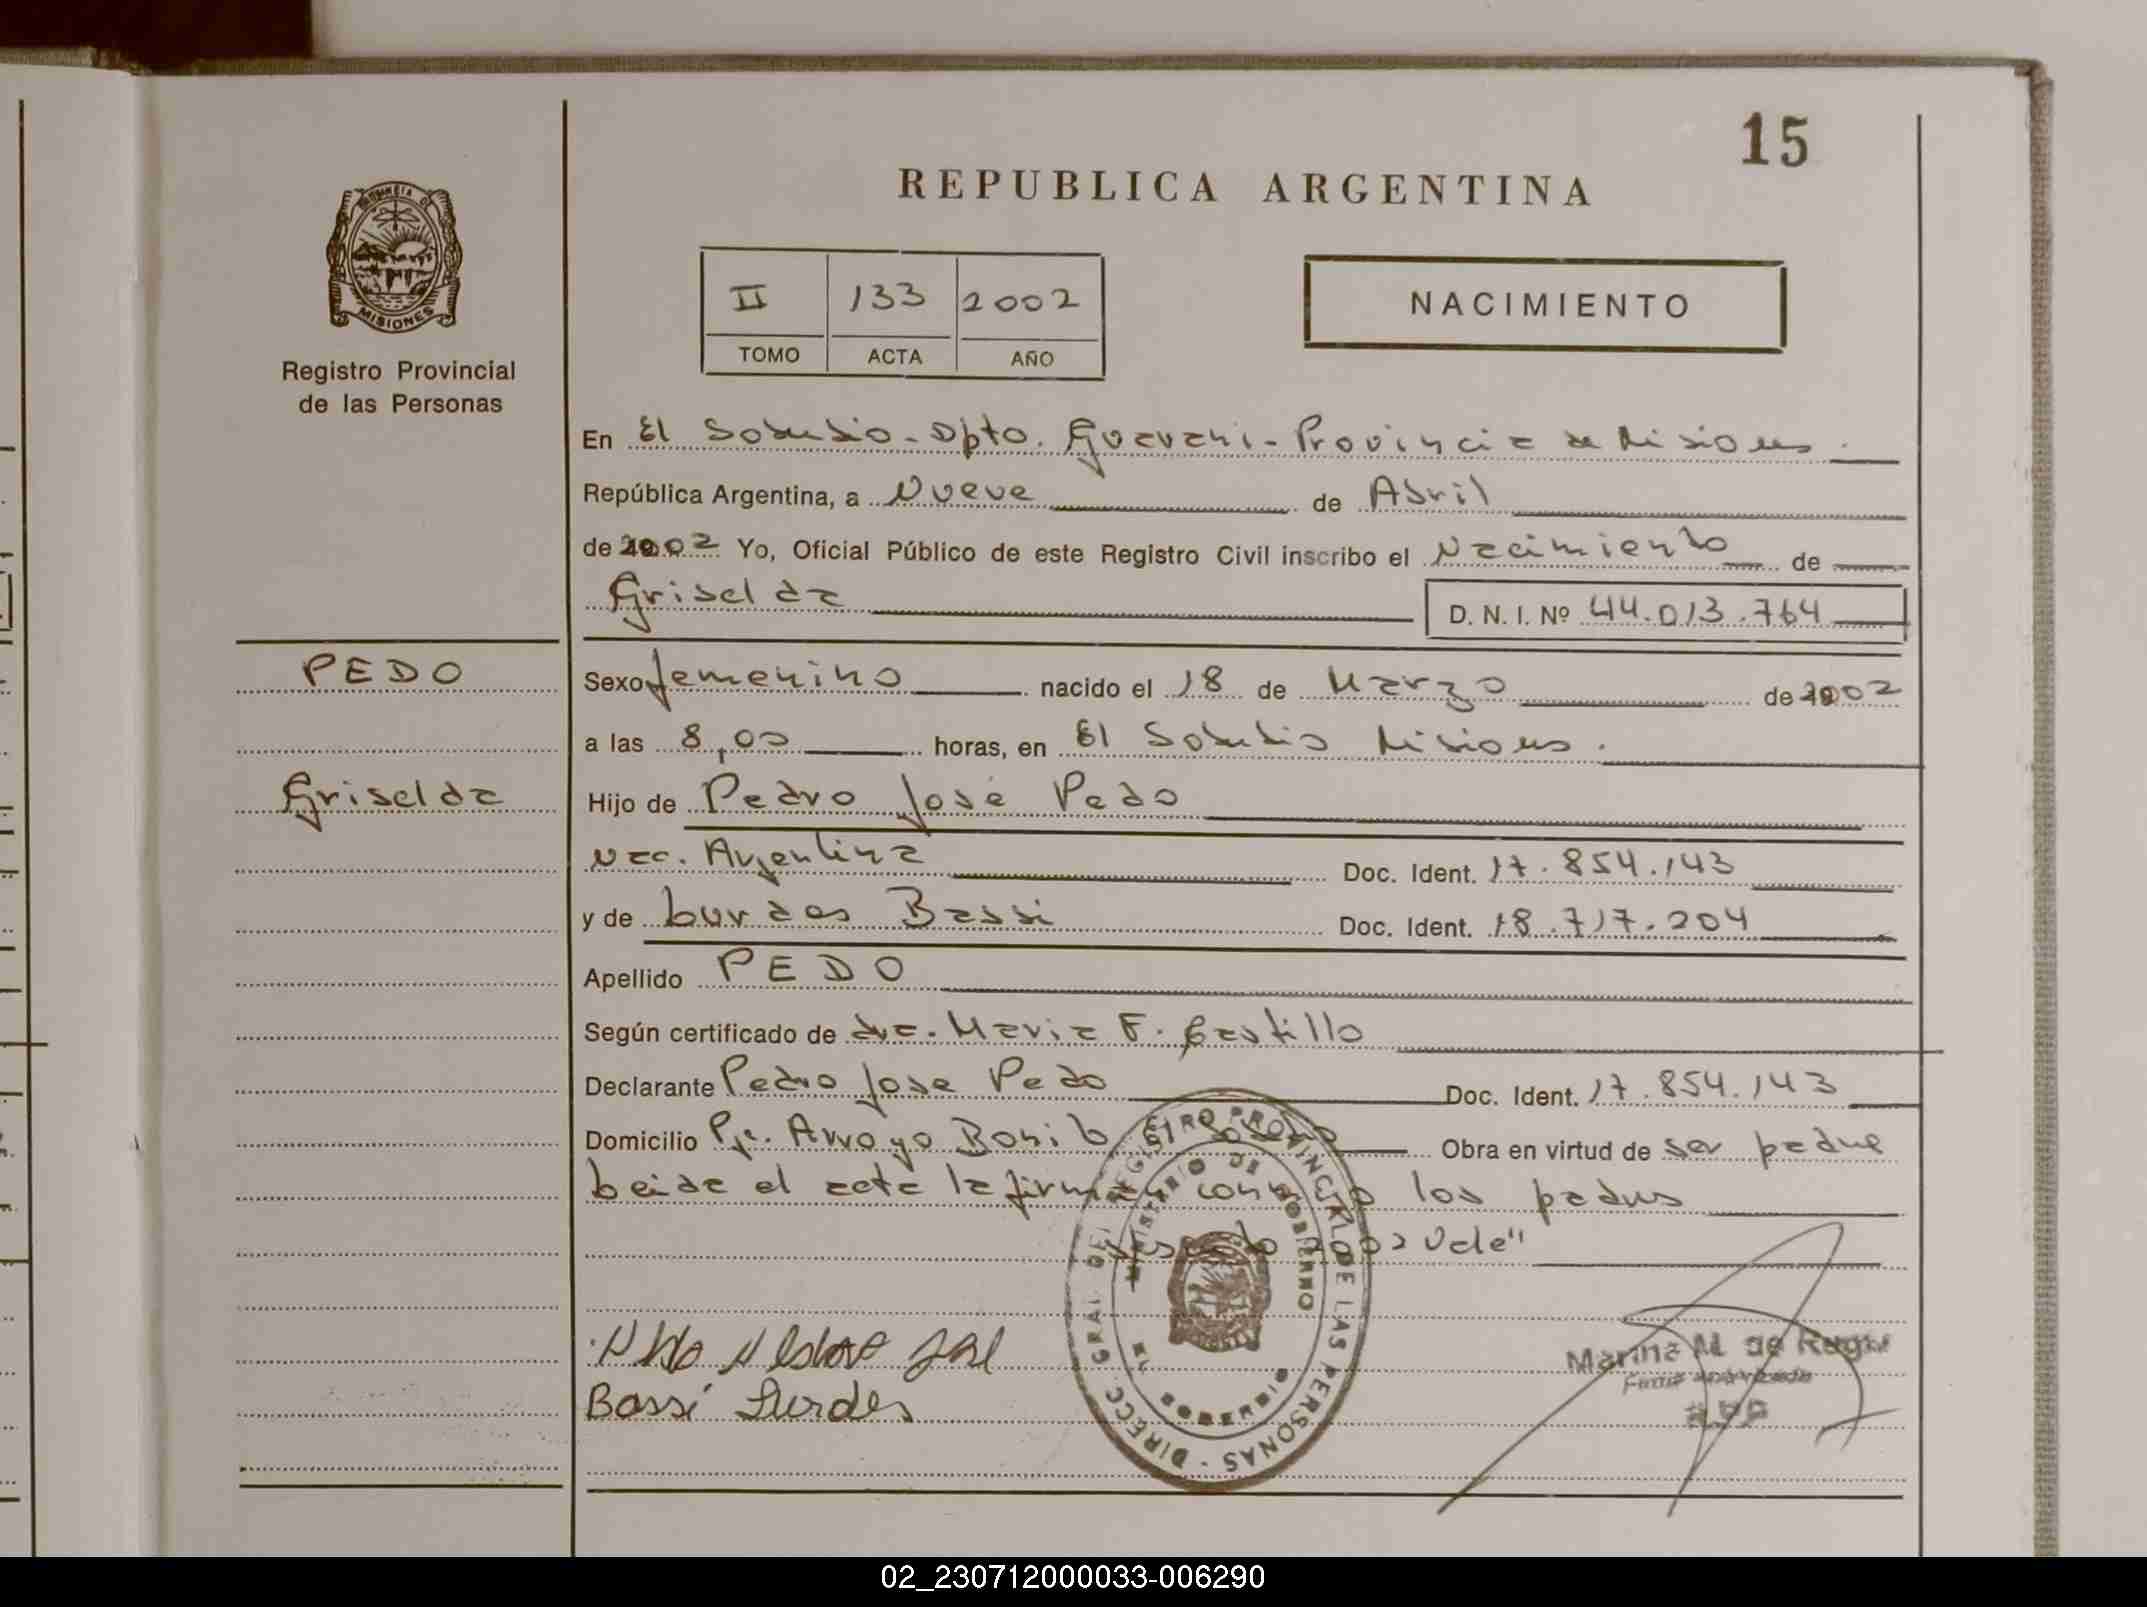 15
REPUBLICA ARGENTINA
II 133 2002
TOMO ACTA AÑO
NACIMIENTO
MISIONES
Registro Provincial
de las Personas
En El Soberbio - Dpto. Guarani - Provincia de Misiones.
República Argentina, a Nueve de Abril
de 2002 Yo, Oficial Público de este Registro Civil inscribo el Nacimiento de
Griselda D. N. I. Nº 44.013.764
PEDO
Griselda
Sexo femenino nacido el 18 de Marzo de 2002
a las 8,00 horas, en El Soberbio Misiones.
Hijo de Pedro José Pedo
Nac. Argentina Doc. Ident. 17.854.143
y de Lurdes Bassi Doc. Ident. 18.717.204
Apellido PEDO
Según certificado de dra. Maria F. Castillo
Declarante Pedro Jose Pedo Doc. Ident. 17.854.143
Domicilio Pje. Arroyo Bonito El Sober Obra en virtud de ser padre
Leida el acta la firman conmigo los padres
2002 Vale"
Bassi Lurdes
DIRECC. GRAL. DEL REGISTRO PROVINCIAL DE LAS PERSONAS
MINISTERIO DE GOBIERNO
EL SOBERBIO
Marina M. de
02_230712000033-006290